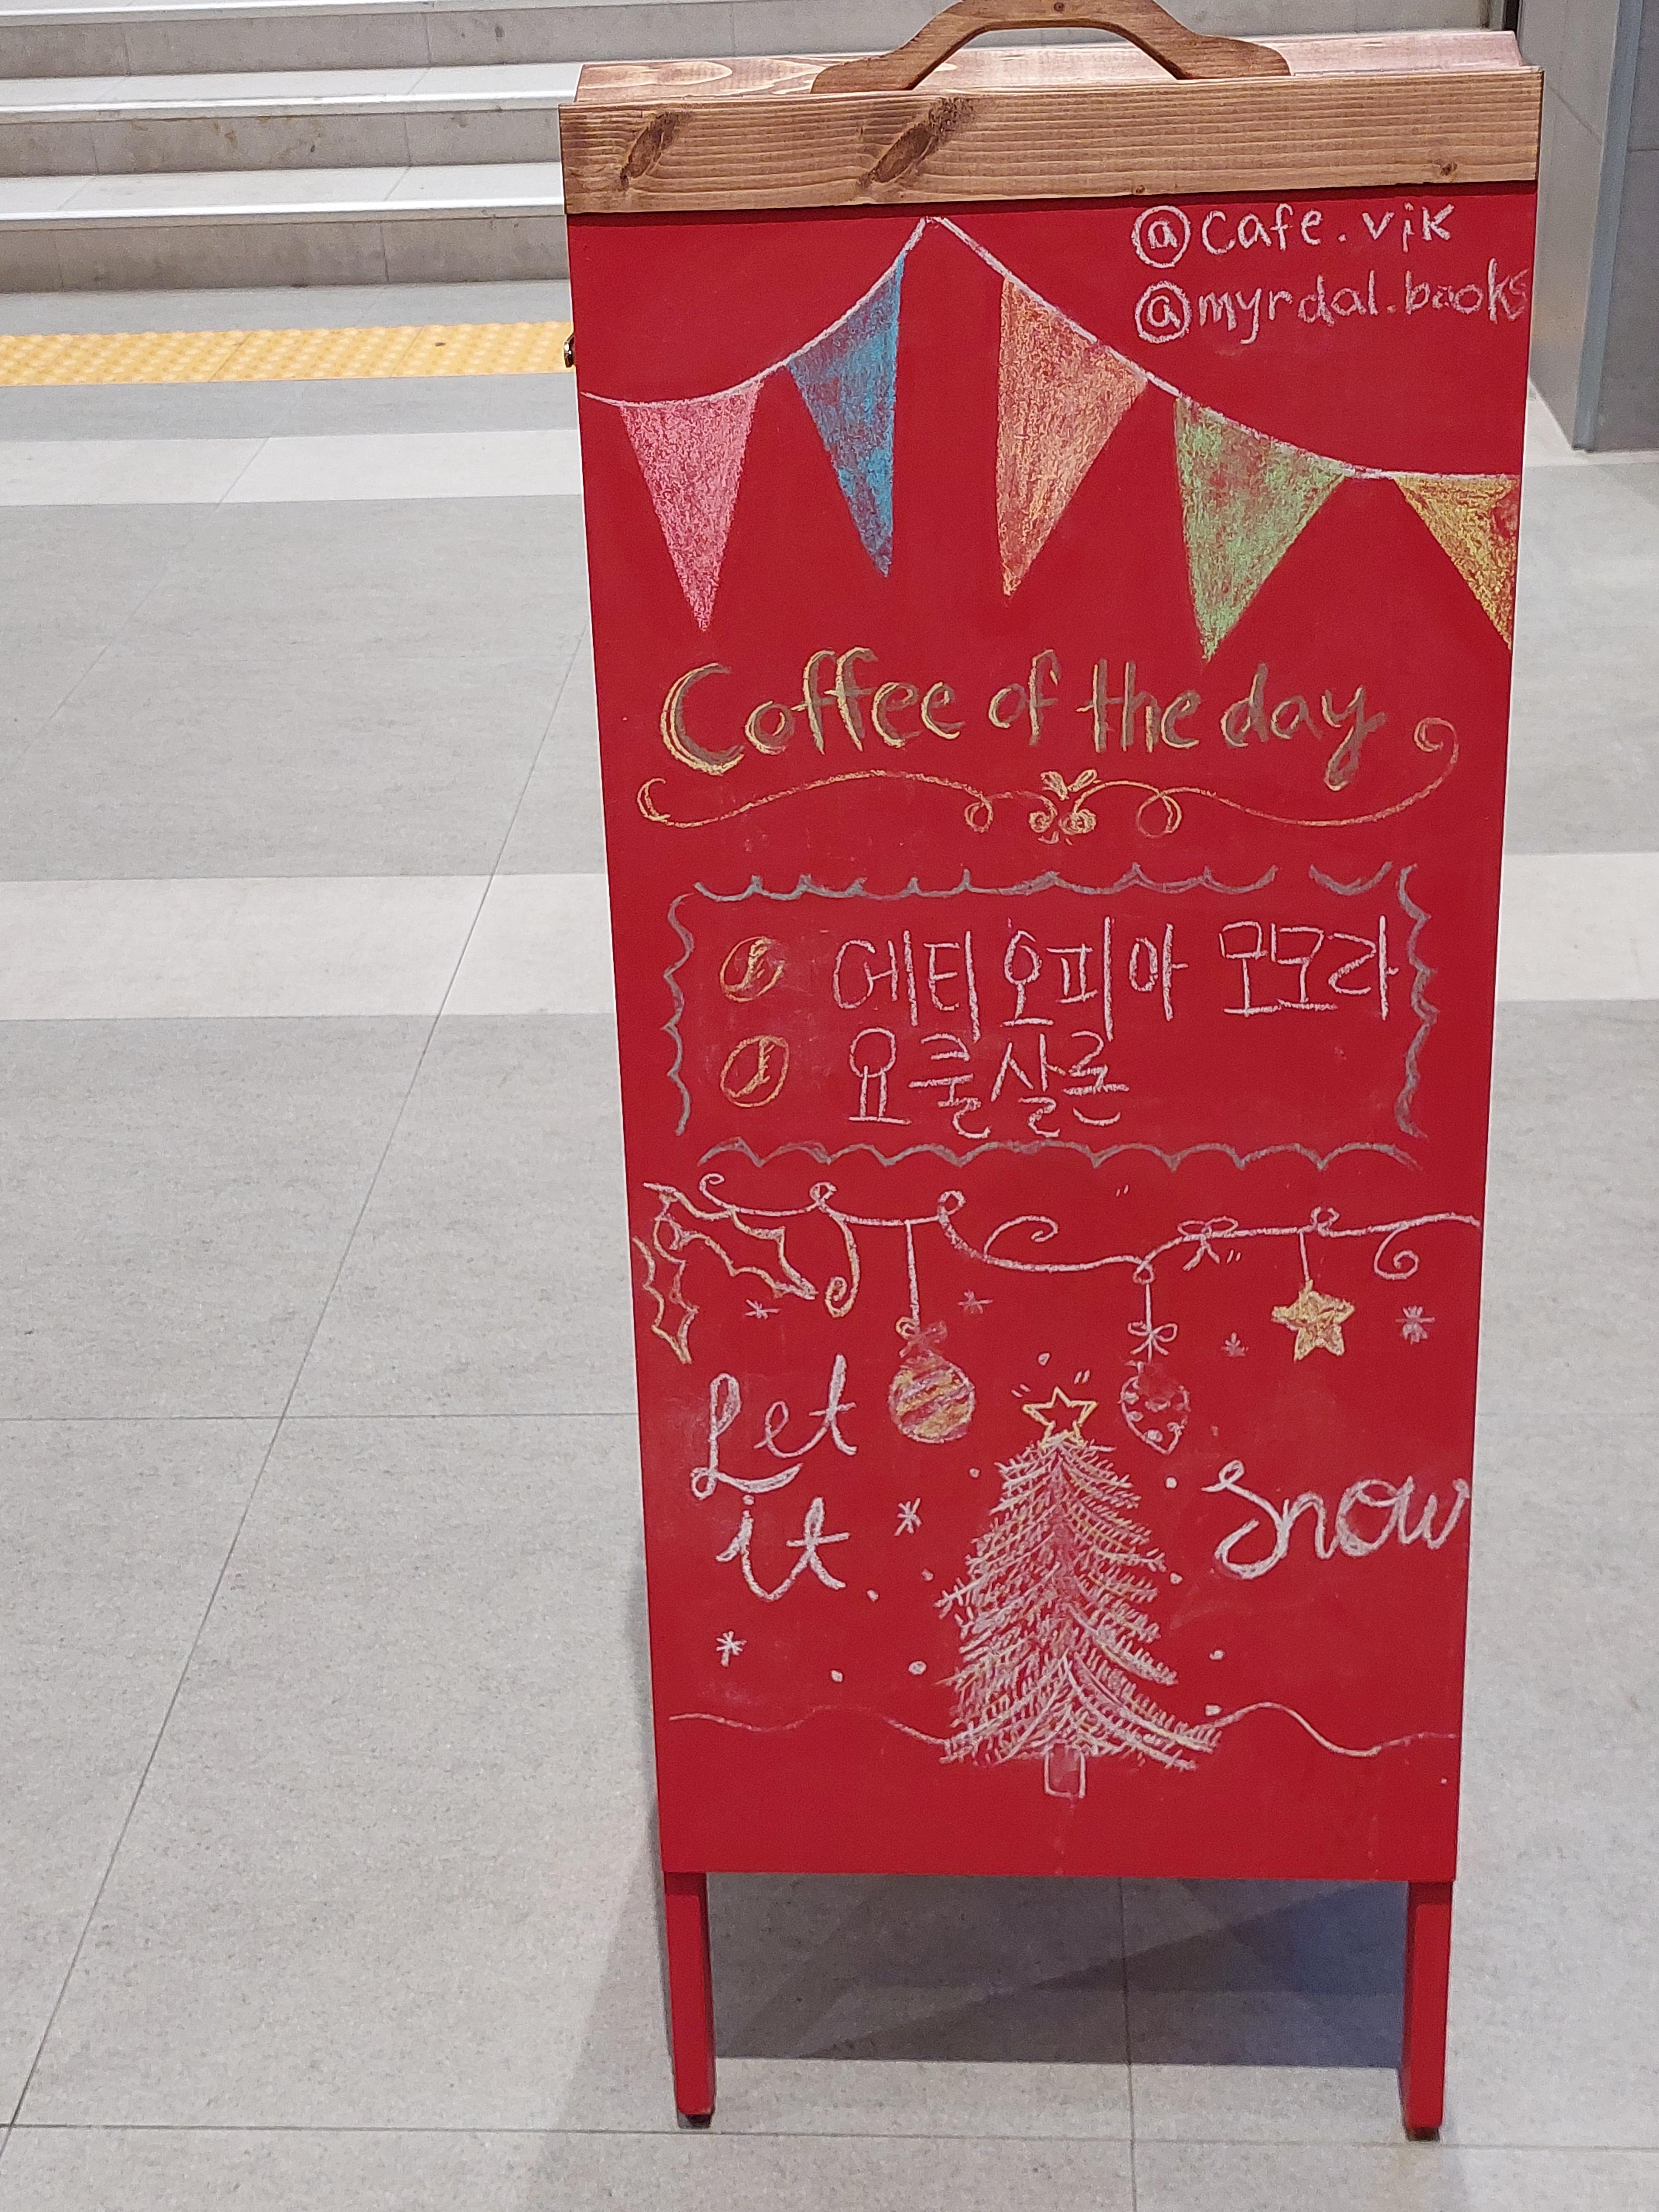 @cafe.vik
@myrdal.books
Coffee of the day
에티오피아 모모라
요쿨살론
Let
it
Snow